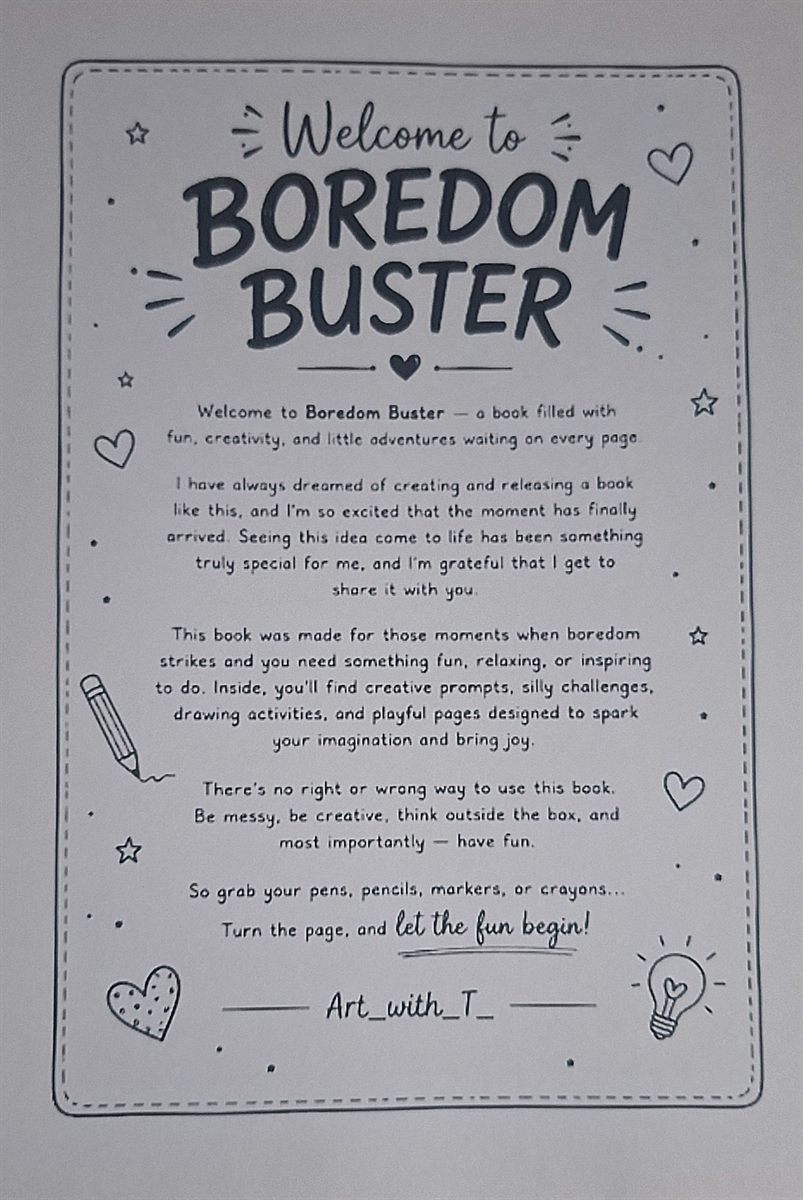 Welcome to
BOREDOM
BUSTER
Welcome to Boredom Buster — a book filled with
fun, creativity, and little adventures waiting on every page.
I have always dreamed of creating and releasing a book
like this, and I'm so excited that the moment has finally
arrived. Seeing this idea come to life has been something
truly special for me, and I'm grateful that I get to
share it with you.
This book was made for those moments when boredom
strikes and you need something fun, relaxing, or inspiring
to do. Inside, you'll find creative prompts, silly challenges,
drawing activities, and playful pages designed to spark
your imagination and bring joy.
There's no right or wrong way to use this book.
Be messy, be creative, think outside the box, and
most importantly — have fun.
So grab your pens, pencils, markers, or crayons...
Turn the page, and let the fun begin!
Art_with_T_